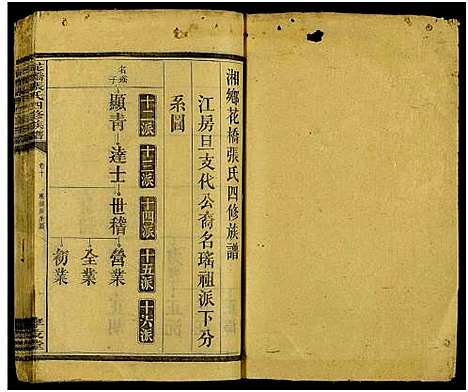 湘鄉花橋張氏四修族譜
江房旦支代公裔名瑤祖派下分
系圖
十二派 十三派 十四派 十五派 十六派
名瑤子
顯青 達士 世稽 營業
全業
初業
花橋張氏四修族譜